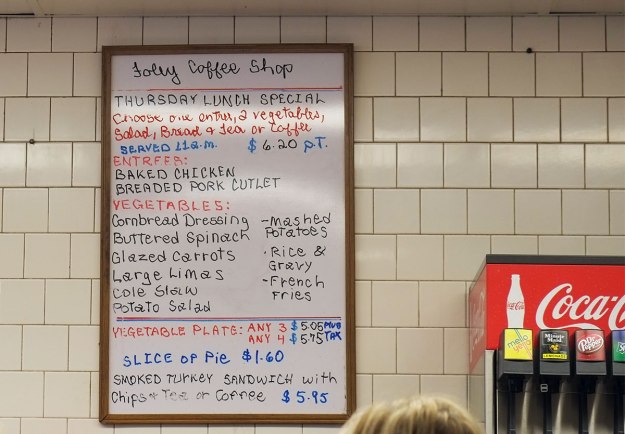 Foley Coffee Shop
THURSDAY LUNCH SPECIAL
Choose one entree, 2 vegetables,
Salad, Bread & Tea or Coffee
SERVED 11 a.m. $6.20 p.T.
ENTREES:
BAKED CHICKEN
BREADED PORK CUTLET
VEGETABLES:
Cornbread Dressing
Buttered Spinach
Glazed Carrots
Large Limas
Cole Slaw
Potato Salad
- Mashed
Potatoes
- Rice &
Gravy
- French
Fries
VEGETABLE PLATE: ANY 3 $5.05 PLUS
ANY 4 $5.75 TAX
SLICE OF Pie $1.60
SMOKED TURKEY SANDWICH with
Chips & Tea or Coffee $5.95
Coca-C
mello
yello
Minute
Maid
LEMONADE
Dr
Pepper